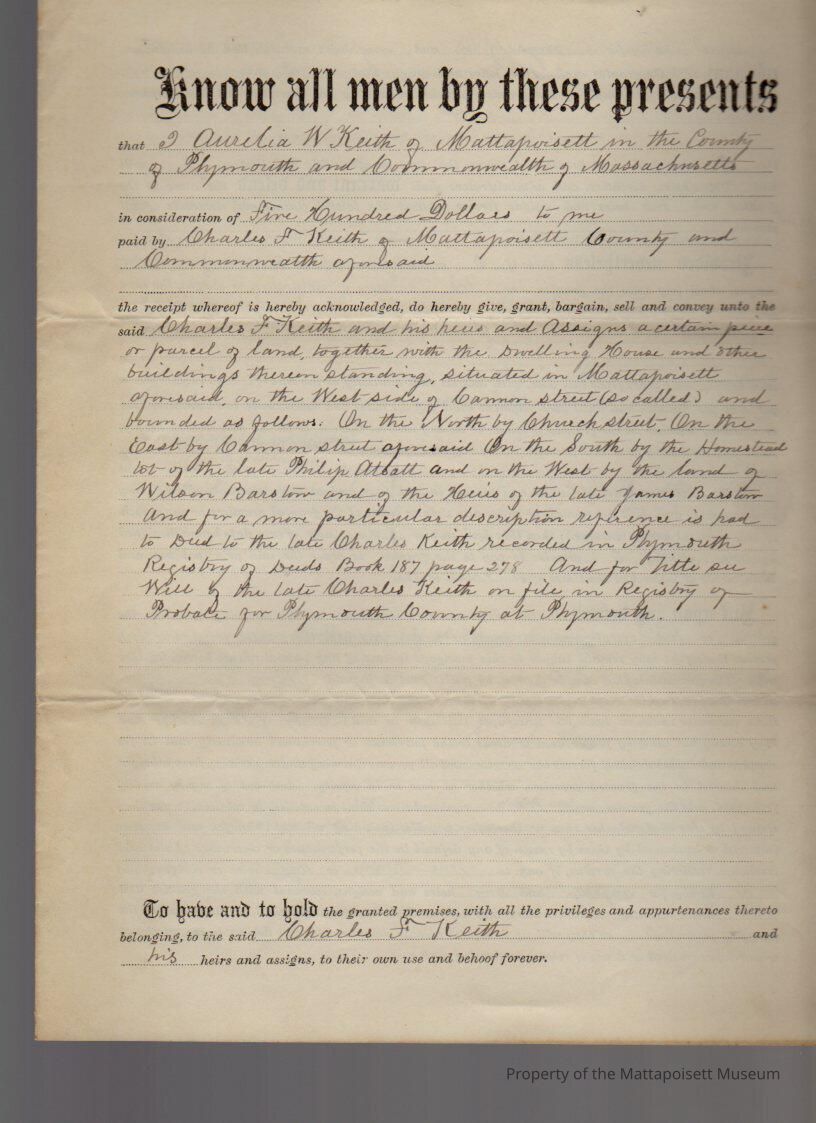 Know all men by these presents
that I Aurelia W Keith of Mattapoisett in the County
of Plymouth and Commonwealth of Massachusetts
in consideration of Five Hundred Dollars to me
paid by Charles F Keith of Mattapoisett County and
Commonwealth aforesaid
the receipt whereof is hereby acknowledged, do hereby give, grant, bargain, sell and convey unto the
said Charles F Keith and his heirs and Assigns a certain piece
or parcel of land, together with the Dwelling House and other
buildings therein standing, situated in Mattapoisett
aforesaid, on the West side of Cannon street (so called) and
bounded as follows: On the North by Church street, On the
East by Cannon street aforesaid On the South by the Homestead
lot of the late Philip Atsatt and on the West by the land of
Wilson Barstow and of the Heirs of the late James Barstow
And for a more particular description reference is had
to Deed to the late Charles Keith recorded in Plymouth
Registry of Deeds Book 187 page 278 And for Title see
Will of the late Charles Keith on file in Registry of
Probate for Plymouth County at Plymouth.
To have and to hold the granted premises, with all the privileges and appurtenances thereto
belonging, to the said Charles F Keith and
his heirs and assigns, to their own use and behoof forever.
Property of the Mattapoisett Museum